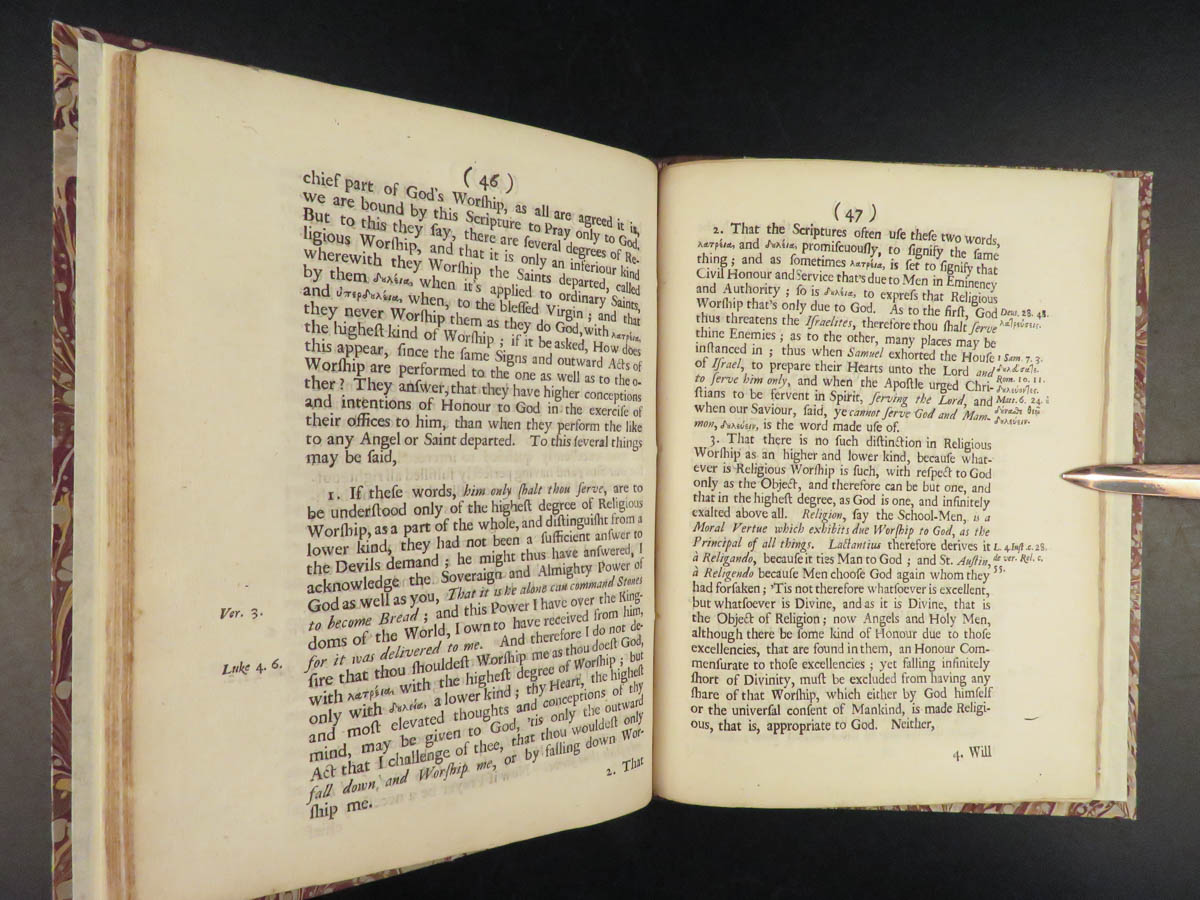 ( 46 )
chief part of God's Worſhip, as all are agreed it is,
we are bound by this Scripture to Pray only to God,
But to this they ſay, there are ſeveral degrees of Re-
ligious Worſhip, and that it is only an inferiour kind
wherewith they Worſhip the Saints departed, called
by them δυλεία, when it's applied to ordinary Saints,
and ὑπερδυλεία, when, to the bleſſed Virgin ; and that
they never Worſhip them as they do God, with λατρεία,
the higheſt kind of Worſhip ; if it be asked, How does
this appear, ſince the ſame Signs and outward Acts of
Worſhip are performed to the one as well as to the o-
ther? They anſwer, that they have higher conceptions
and intentions of Honour to God in the exerciſe of
their offices to him, than when they perform the like
to any Angel or Saint departed. To this ſeveral things
may be ſaid,
1. If theſe words, him only ſhalt thou ſerve, are to
be underſtood only of the higheſt degree of Religious
Worſhip, as a part of the whole, and diſtinguiſht from a
lower kind, they had not been a ſufficient anſwer to
the Devils demand ; he might thus have anſwered, I
acknowledge the Soveraign and Almighty Power of
God as well as you, That it is he alone can command Stones
Ver. 3. to become Bread ; and this Power I have over the King-
doms of the World, I own to have received from him,
Luke 4. 6. for it was delivered to me. And therefore I do not de-
ſire that thou ſhouldeſt Worſhip me as thou doeſt God,
with λατρεία, with the higheſt degree of Worſhip ; but
only with δυλεία, a lower kind ; thy Heart, the higheſt
and moſt elevated thoughts and conceptions of thy
mind, may be given to God, 'tis only the outward
Act that I challenge of thee, that thou wouldeſt only
fall down, and Worſhip me, or by falling down Wor-
ſhip me.
2. That
( 47 )
2. That the Scriptures often uſe theſe two words,
λατρεία, and δυλεία, promiſcuouſly, to ſignify the ſame
thing ; and as ſometimes λατρεία, is ſet to ſignify that
Civil Honour and Service that's due to Men in Eminency
and Authority ; ſo is δυλεία, to expreſs that Religious
Worſhip that's only due to God. As to the firſt, God Deut. 28. 48.
thus threatens the Iſraelites, therefore thou ſhalt ſerve λατρεύσεις.
thine Enemies ; as to the other, many places may be
inſtanced in ; thus when Samuel exhorted the Houſe 1 Sam. 7. 3.
of Iſrael, to prepare their Hearts unto the Lord and δυλεύσατε.
to ſerve him only, and when the Apoſtle urged Chri- Rom. 10. 11.
ſtians to be fervent in Spirit, ſerving the Lord, and δυλεύοντες.
when our Saviour, ſaid, ye cannot ſerve God and Mam- Mat. 6. 24.
mon, δυλεύειν, is the word made uſe of. δυλεύειν.
3. That there is no ſuch diſtinction in Religious
Worſhip as an higher and lower kind, becauſe what-
ever is Religious Worſhip is ſuch, with reſpect to God
only as the Object, and therefore can be but one, and
that in the higheſt degree, as God is one, and infinitely
exalted above all. Religion, ſay the School-Men, is a
Moral Vertue which exhibits due Worſhip to God, as the
Principal of all things. Lactantius therefore derives it L. 4. Inſt. c. 28.
à Religando, becauſe it ties Man to God ; and St. Auſtin, de ver. Rel. c.
à Religendo becauſe Men chooſe God again whom they 55.
had forſaken ; 'Tis not therefore whatſoever is excellent,
but whatſoever is Divine, and as it is Divine, that is
the Object of Religion ; now Angels and Holy Men,
although there be ſome kind of Honour due to thoſe
excellencies, that are found in them, an Honour Com-
menſurate to thoſe excellencies ; yet falling infinitely
ſhort of Divinity, muſt be excluded from having any
ſhare of that Worſhip, which either by God himſelf
or the univerſal conſent of Mankind, is made Religi-
ous, that is, appropriate to God. Neither,
4. Will